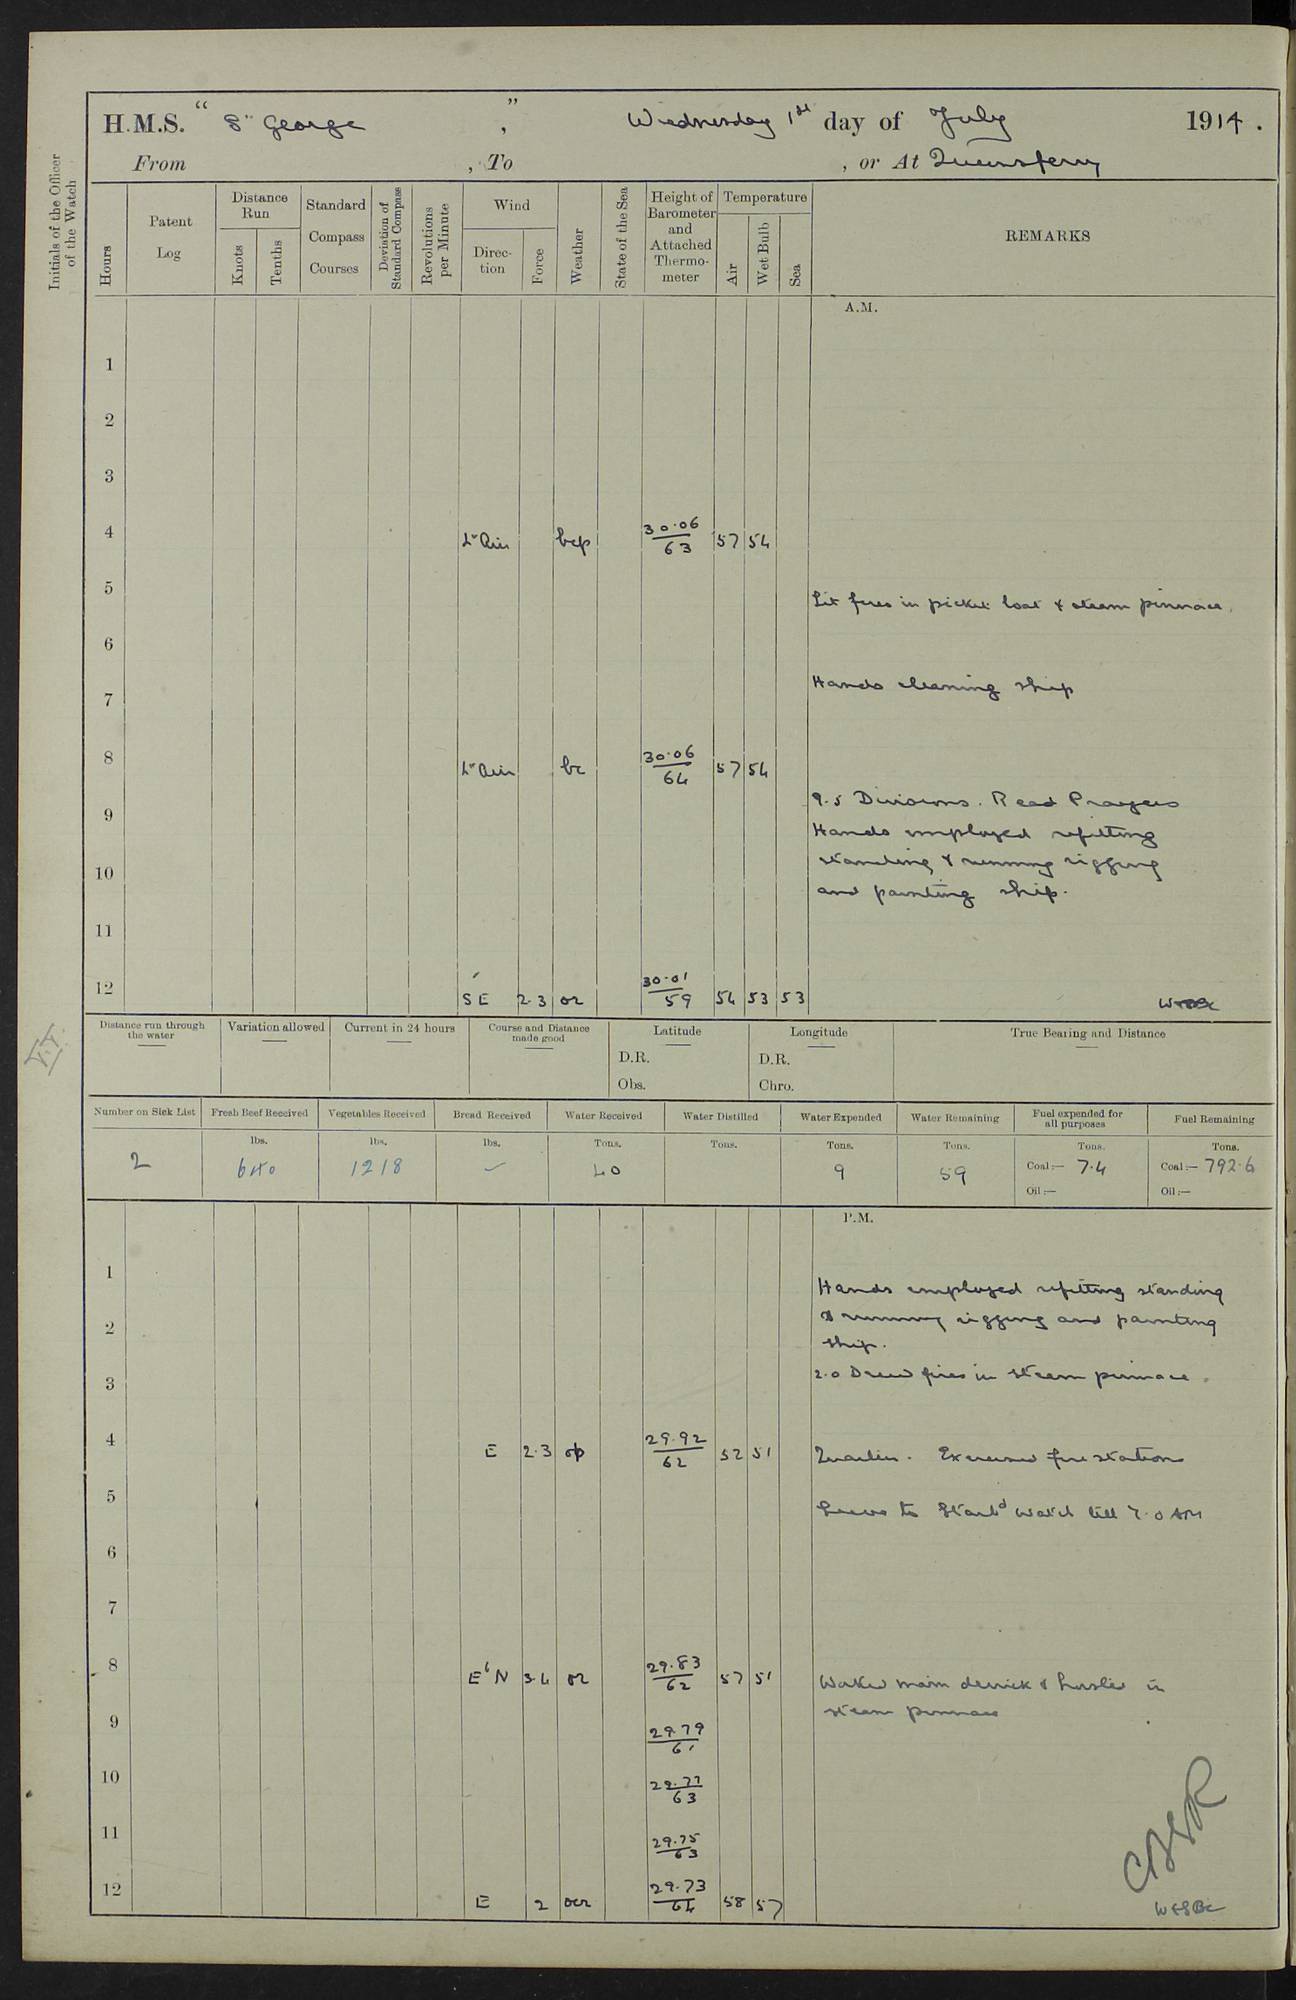 H.M.S. " St George " , Wednesday 1st day of July 1914 .
From , To , or At Queensferry
Initials of the Officer of the Watch
Hours
Patent Log
Distance Run
Knots
Tenths
Standard Compass Courses
Deviation of Standard Compass
Revolutions per Minute
Wind
Direction
Force
Weather
State of the Sea
Height of Barometer and Attached Thermometer
Temperature
Air
Wet Bulb
Sea
REMARKS
A.M.
1
2
3
4 Lt Airs bcp 30.06 63 57 54
5
Lit fires in picket boat & steam pinnace.
6
Hands cleaning ship
7
8 Lt Airs bc 30.06 64 57 54
9.5 Divisions. Read Prayers
9
Hands employed refitting
standing & running rigging
10
and painting ship.
11
12 SE 2.3 or 30.01 59 54 53 53
Distance run through the water
Variation allowed
Current in 24 hours
Course and Distance made good
Latitude
D.R.
Obs.
Longitude
D.R.
Chro.
True Bearing and Distance
Number on Sick List
Fresh Beef Received
Vegetables Received
Bread Received
Water Received
Water Distilled
Water Expended
Water Remaining
Fuel expended for all purposes
Fuel Remaining
lbs. lbs. lbs. Tons. Tons. Tons. Tons. Tons. Tons.
2 640 1218 40 9 59 Coal:— 7.4 Coal:— 792.6
Oil:— Oil:—
P.M.
1
Hands employed refitting standing
& running rigging and painting
2
ship.
2.0 Drew fires in steam pinnace.
3
4 E 2.3 op 29.92 62 52 51 Quarters. Exercised fire stations
5
Leave to Starbd watch till 7.0 AM
6
7
8 E'N 3.4 or 29.83 62 57 51 Worked main derrick & hoisted in
steam pinnace
9 29.79 61
10 29.77 63
11 29.75 63
12 E 2 ocr 29.73 64 58 57